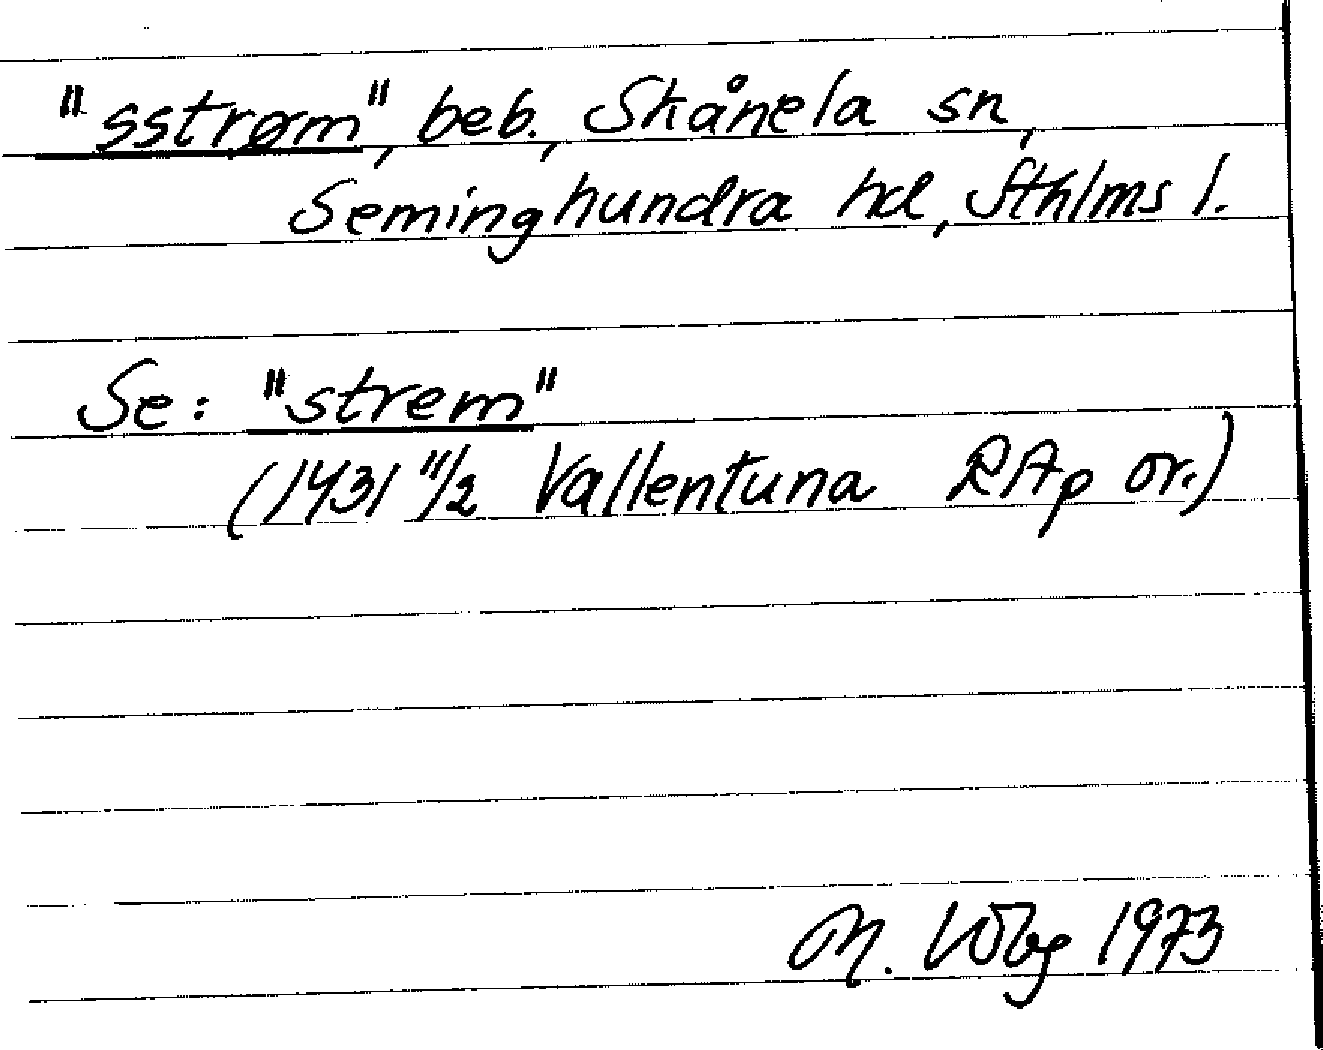 "sstrøm", beb., Skånela sn,
Seminghundra hd, Sthlms l.
Se: "strem"
(1431 11/2 Vallentuna RAp or.)
M. Wbg 1973